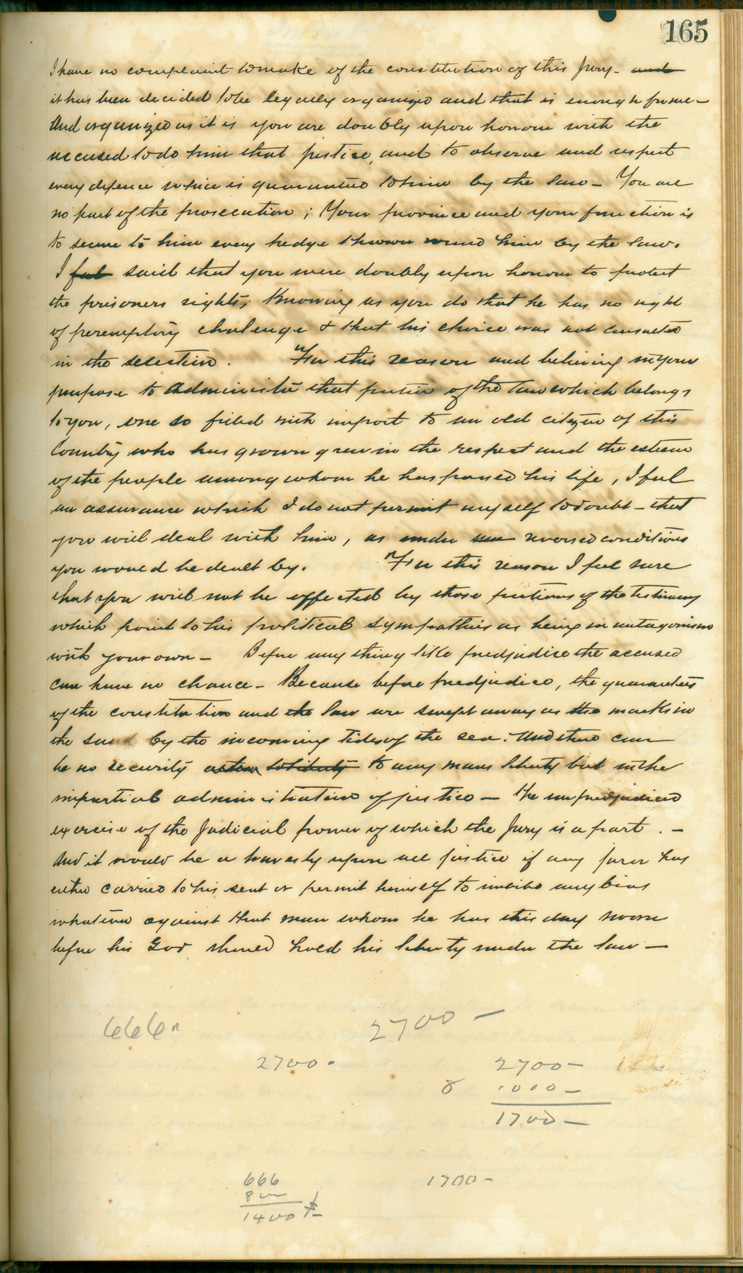 165
I have no complaint to make of the constitution of this Jury - and
it has been decided to be legally organized and that is enough for me -
And organized as it is you are doubly upon honour with the
accused to do him that justice, and to observe and respect
every defence which is guaranteed to him by the law - You are
no part of the prosecution; Your province and your function is
to secure to him every hedge thrown around him by the law.
I feel said that you were doubly upon honour to protect
the prisoners rights, Knowing as you do that he has no right
of peremptory challenge & that his choice was not consulted
in the selection. For this reason and believing in your
purpose to administer that portion of the law which belongs
to you, one so filled with import to an old citizen of this
County who has grown grey in the respect and the esteem
of the people among whom he has passed his life, I feel
an assurance which I do not permit myself to doubt - that
you will deal with him, as under reversed conditions
you would be dealt by. For this reason I feel sure
that you will not be effected by those portions of the testimony
which point to his political sympathies as being in antagonism
with your own - Before any thing like predjudice the accused
can have no chance - Because before predjudice, the guarantees
of the constitution and the law are swept away as the marks in
the sand by the incoming tides of the sea. And there can
be no security to any mans liberty but in the
impartial administration of justice - the unpredjudiced
exercise of the Judicial power of which the Jury is a part. -
And it would be a travesty upon all justice if any juror has
either carried to his seat or permit himself to imbibe any bias
whatever against that man whom he has this day sworn
before his God should hold his liberty under the law -
666
2700 -
2700 -
2700 -
8 1000 -
1700 -
666
800
1400
1700 -